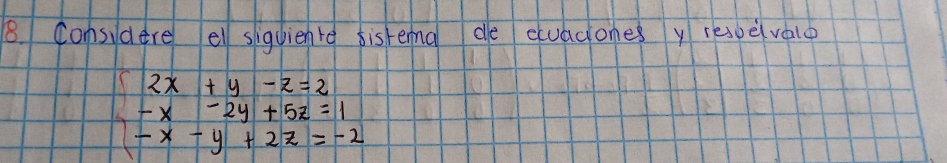 8. Considere el siguiente sistema de ecuaciones y resuélvalo
2x + y - z = 2
-x -2y + 5z = 1
-x - y + 2z = -2